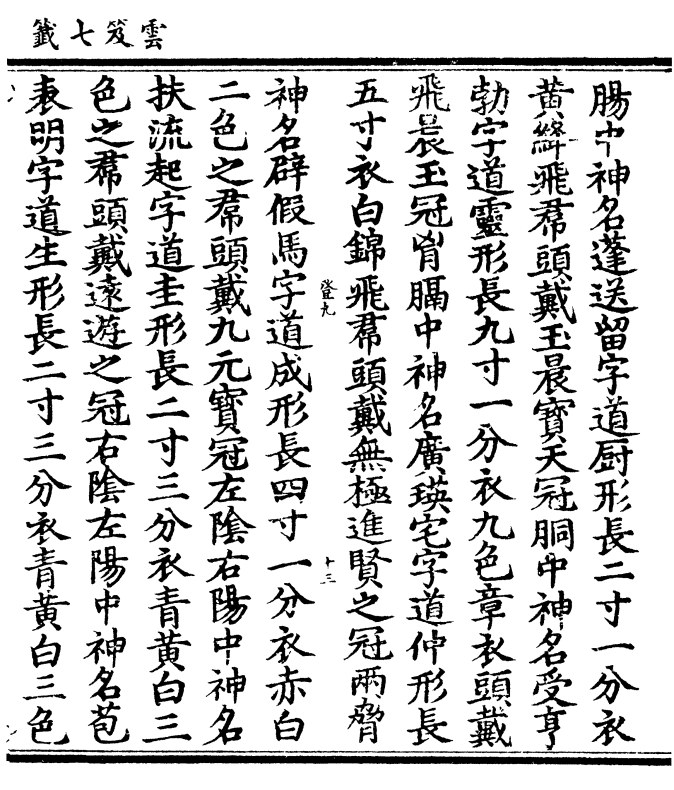 雲笈七籤
腸中神名蓬送留字道厨形長二寸一分衣
黃絳飛帬頭戴玉晨寳天冠胴中神名受亨
勃字道靈形長九寸一分衣九色章衣頭戴
飛晨玉冠胷膈中神名廣瑛宅字道仲形長
五寸衣白錦飛帬頭戴無極進賢之冠兩脅
登九
十三
神名辟假馬字道成形長四寸一分衣赤白
二色之帬頭戴九元寳冠左隂右陽中神名
扶流起字道圭形長二寸三分衣青黃白三
色之帬頭戴遠遊之冠右隂左陽中神名苞
表明字道生形長二寸三分衣青黃白三色